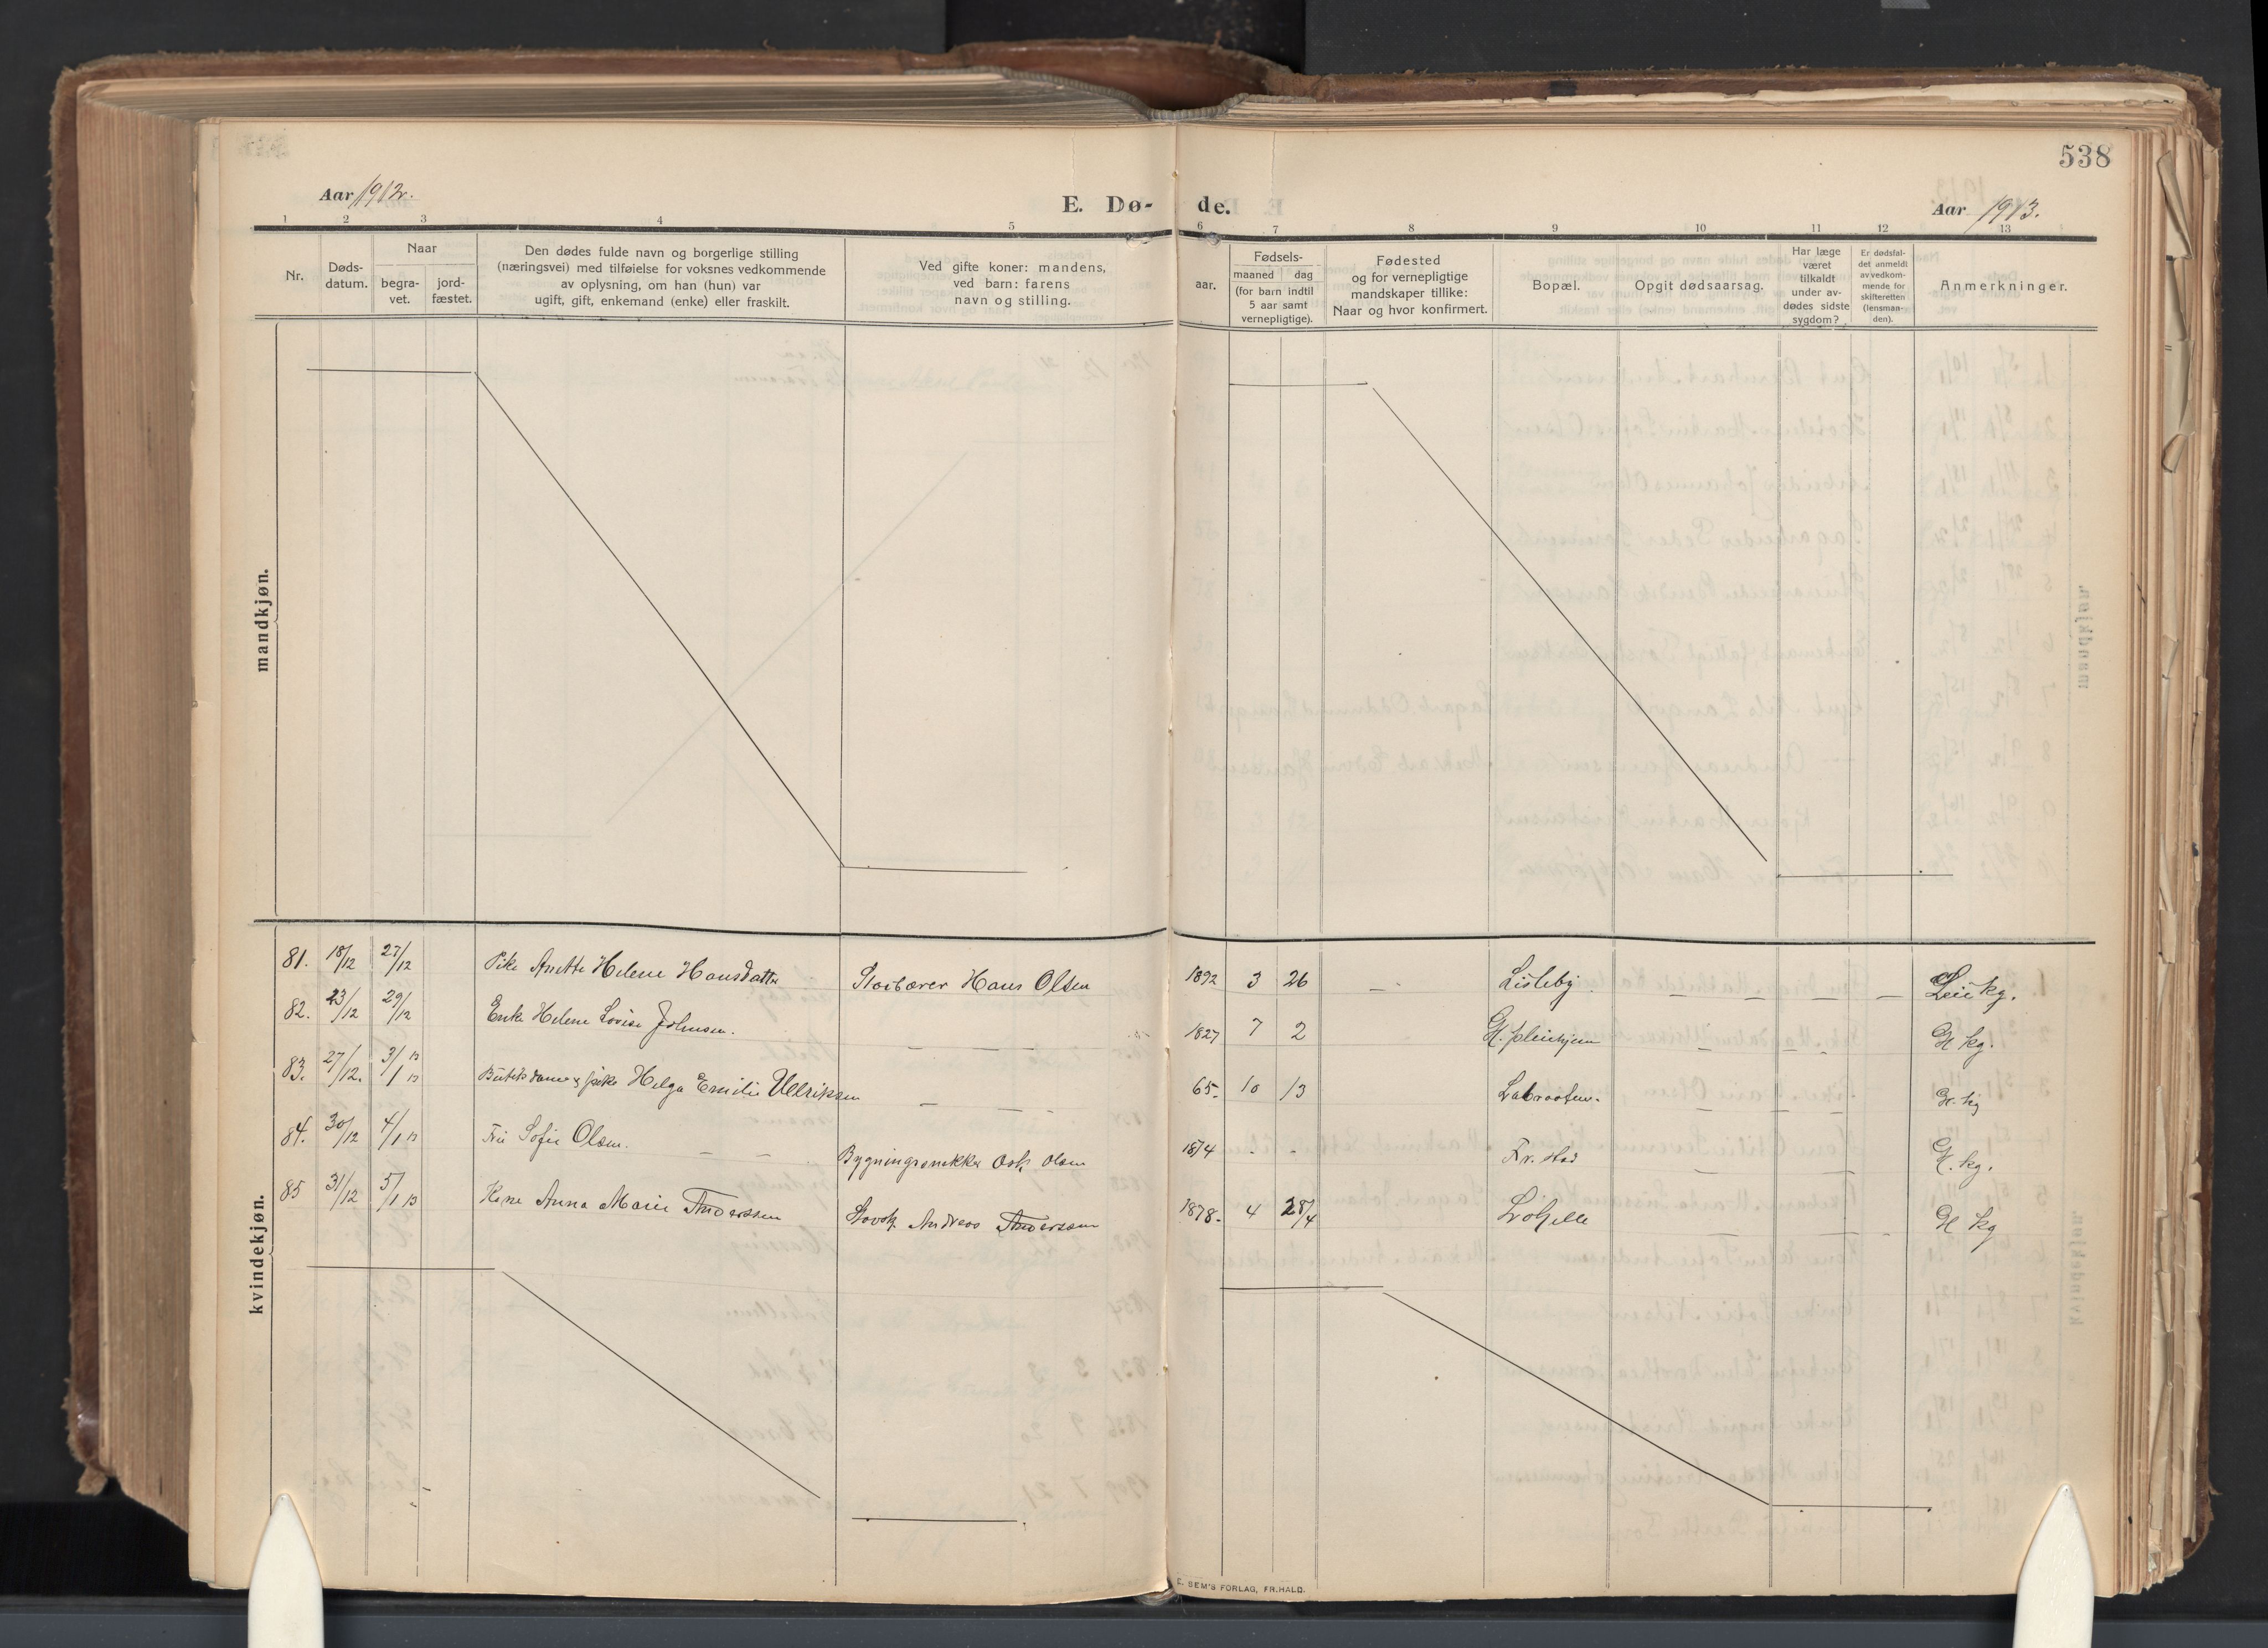 538
Aar 1912.
E. Dø-de.
Aar 1913.
1 2 3 4 5 6 7 8 9 10 11 12 13
Nr.
Døds-
datum.
Naar
begra-
vet.
jord-
fæstet.
Den dødes fulde navn og borgerlige stilling
(næringsvei) med tilføielse for voksnes vedkommende
av oplysning, om han (hun) var
ugift, gift, enkemand (enke) eller fraskilt.
Ved gifte koner: mandens,
ved barn: farens
navn og stilling.
aar.
Fødsels-
maaned dag
(for barn indtil
5 aar samt
vernepligtige).
Fødested
og for vernepligtige
mandskaper tillike:
Naar og hvor konfirmert.
Bopæl.
Opgit dødsaarsag.
Har læge
været
tilkaldt
under av-
dødes sidste
sygdom?
Er dødsfal-
det unmeldt
av vedkom-
mende for
skifteretten
(lensman-
den).
Anmerkninger.
mandkjøn.
kvindekjøn.
81. 18/12 27/12 Pike Anette Helene Hansdatter Hans Olsen 1892 3 26 — Lisleby — — — — Leie kg.
82. 23/12 29/12 Enke Helene Lovise Johnsen. — — — 1827 7 2 G. pleiehjem — — — G kg.
83. 27/12. 3/1 13 Butiksdame pike Helga Emilie Ullriksen — — - 65. 10 13 — — — G. kg
84. 30/12 4/1 13 Fru Sofie Olsen. — — Bygningssnekker Osk Olsen 1874 - - Fr. stad — — G. kg.
85 31/12 5/1 13 Kone Anna Marie Anderssen Andreas Anderssen 1878. 4 28/4 — — — G kg
E. SEM'S FORLAG, FR.HALD.